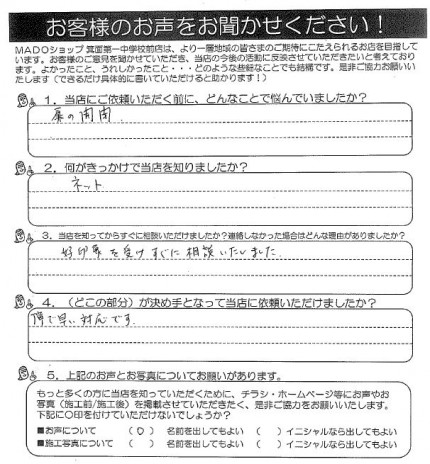 お客様のお声をお聞かせください！
MADOショップ 箕面第一中学校前店は、より一層地域の皆さまのご期待にこたえられるお店を目指して
います。お客様のご意見を聞かせていただき、当店の今後の活動に反映させていただきたいと考えており
ます。よかったこと、うれしかったこと・・・どのような些細なことでも結構です。是非ご協力お願いい
たします（できるだけ具体的に書いていただけると助かります！）
1．当店にご依頼いただく前に、どんなことで悩んでいましたか？
扉の開閉
2．何がきっかけで当店を知りましたか？
ネット
3．当店を知ってからすぐに相談いただけましたか？連絡しなかった場合はどんな理由がありましたか？
好印象を受けすぐに相談いたしました
4．（どこの部分）が決め手となって当店に依頼いただけましたか？
で早い対応です.
5．上記のお声とお写真についてお願いがあります。
もっと多くの方に当店を知っていただくために、チラシ・ホームページ等にお声やお
写真（施工前/施工後）を掲載させていただきたく、是非ご協力をお願いいたします。
下記に○印を付けていただけないでしょうか？
■お声について （○）名前を出してもよい （ ）イニシャルなら出してもよい
■施工写真について （ ）名前を出してもよい （ ）イニシャルなら出してもよい